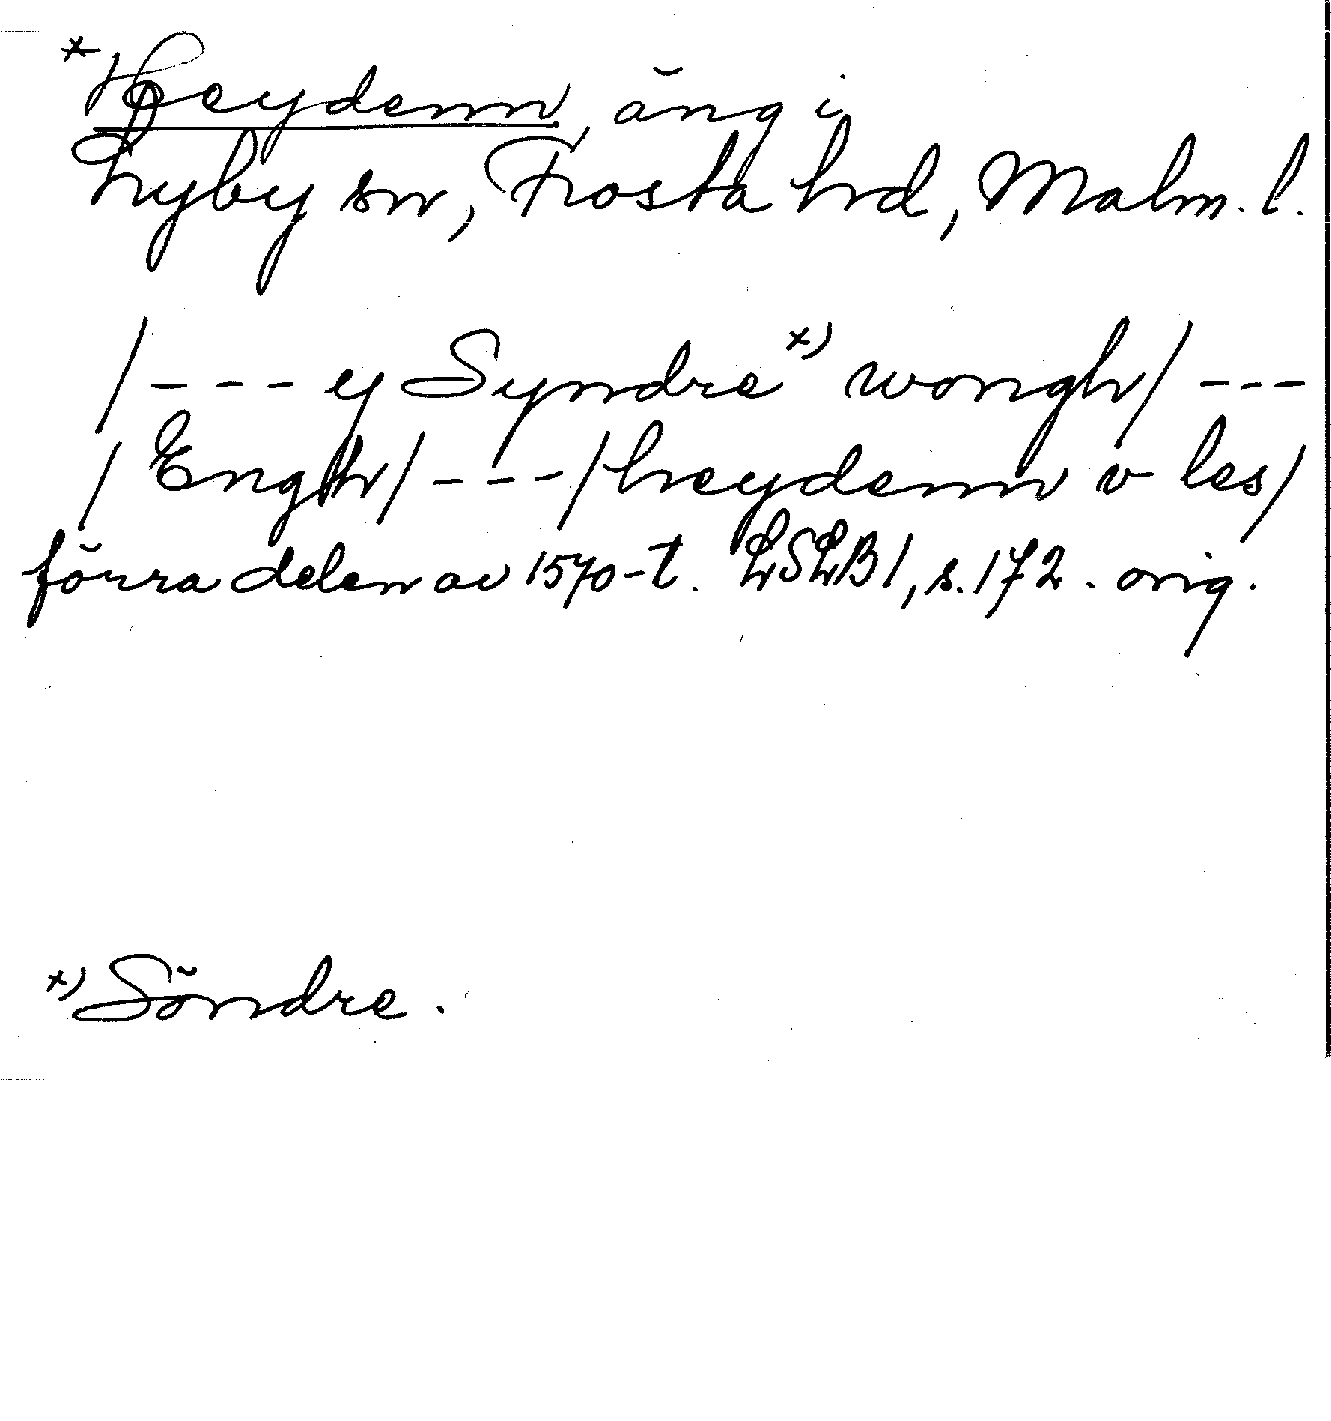 *Heydenn, äng i
Lyby sn, Frosta hrd, Malm. l.
/ - - - ey Syndre x) wongh / - - -
/ Engh / - - - / heydenn v les /
förra delen av 1570-t. LSLB 1, s. 172. orig.
x) Söndre.